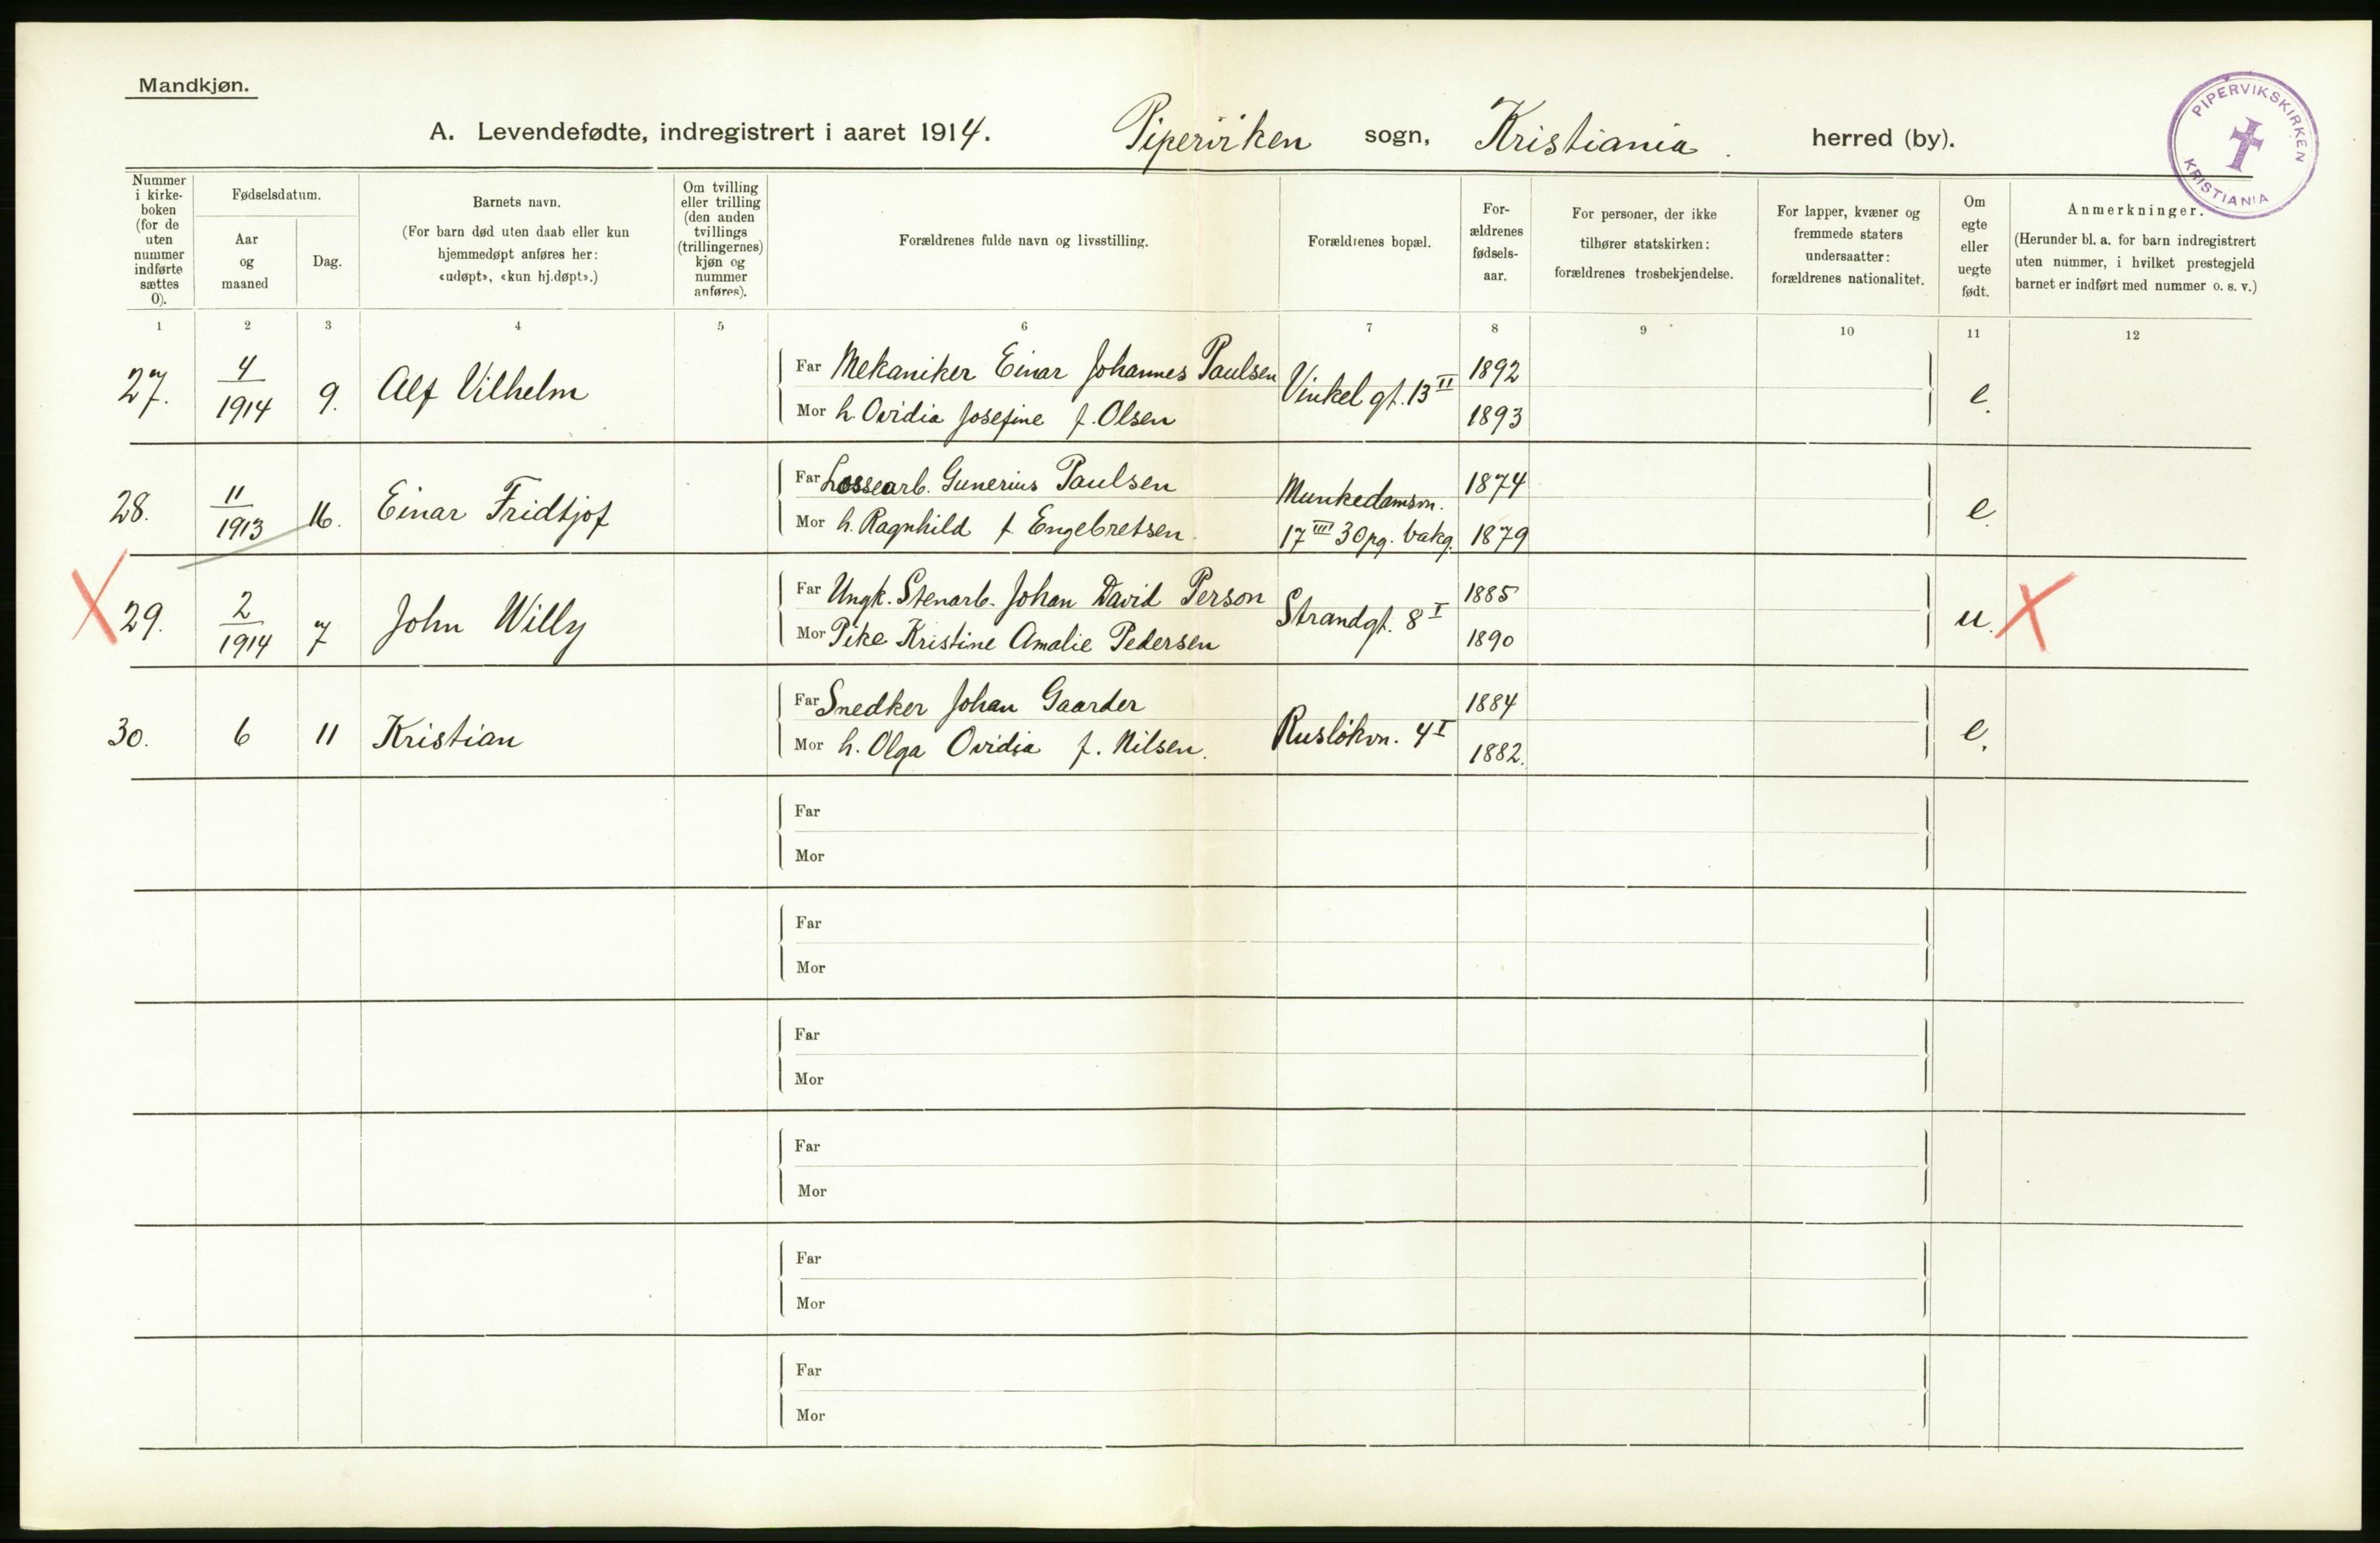 Mandkjøn.
A. Levendefødte, indregistrert i aaret 1914. Piperviken sogn, Kristiania. herred (by).
PIPERVIKSKIRKEN
KRISTIANIA
Nummer
i kirke-
boken
(for de
uten
nummer
indførte
sættes
0).
Fødselsdatum.
Aar
og
maaned
Dag.
Barnets navn.
(For barn død uten daab eller kun
hjemmedøpt anføres her:
«udøpt», «kun hj.døpt».)
Om tvilling
eller trilling
(den anden
tvillings
(trillingernes)
kjøn og
nummer
anføres).
Forældrenes fulde navn og livsstilling.
Forældrenes bopæl.
For-
ældrenes
fødsels-
aar.
For personer, der ikke
tilhører statskirken:
forældrenes trosbekjendelse.
For lapper, kvæner og
fremmede staters
undersaatter:
forældrenes nationalitet.
Om
egte
eller
uegte
født.
Anmerkninger.
(Herunder bl. a. for barn indregistrert
uten nummer, i hvilket prestegjeld
barnet er indført med nummer o. s. v.)
1 2 3 4 5 6 7 8 9 10 11 12
27. 4/1914 9. Alf Vilhelm
Far Mekaniker Einar Johannes Paulsen
Mor h. Ovidia Josefine f. Olsen
Vinkelgt. 13 II
1892
1893
e.
28. 11/1913 16. Einar Fridtjof
Far Lossearb. Gunerius Paulsen
Mor h. Ragnhild f. Engebretsen
Munkedamsvn.
17 IIII 30 pg. bakg.
1874
1879
e.
X 29. 2/1914 7 John Willy
Far Ungk. Stenarb. Johan David Person
Mor Pike Kristine Amalie Pedersen
Strandgt. 8 I
1885
1890
u. X
30. 6 11 Kristian
Far Snedker Johan Gaarder
Mor h. Olga Ovidia f. Nilsen.
Rusløkvn. 4 I
1884
1882.
e.
Far
Mor
Far
Mor
Far
Mor
Far
Mor
Far
Mor
Far
Mor